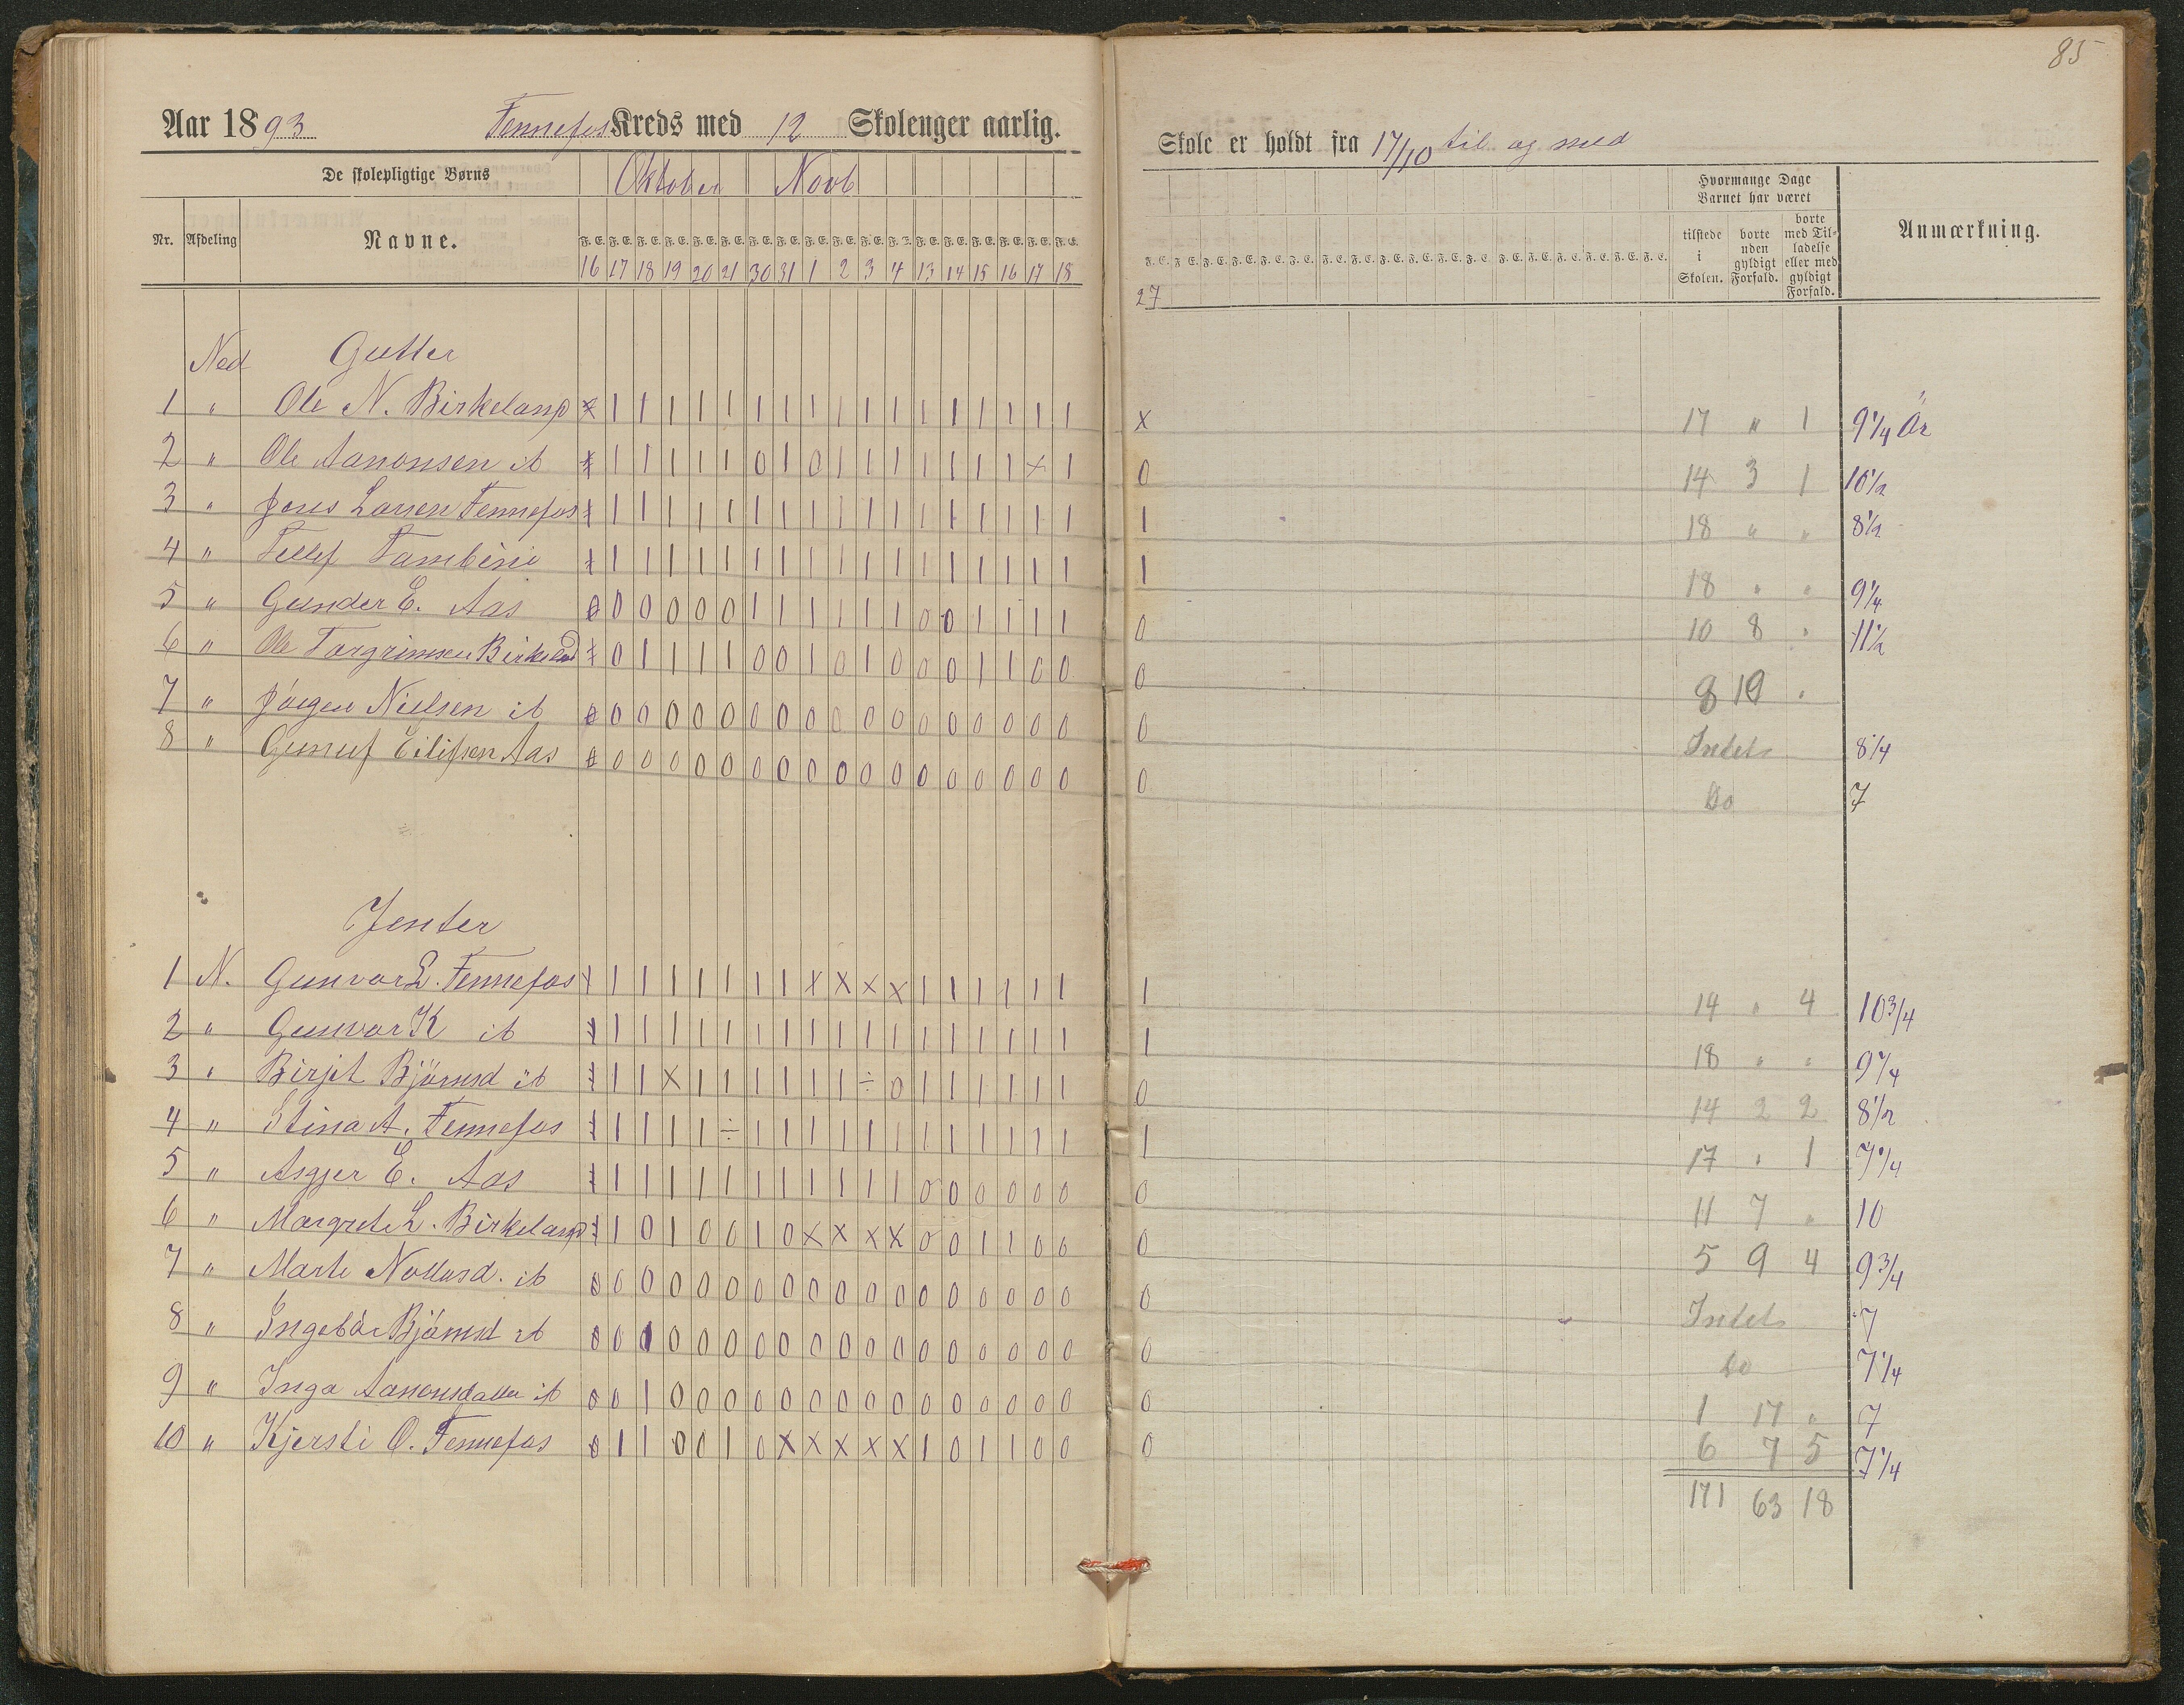 85
Aar 1893 Fennefos Kreds med 12 Skolenger aarlig.
De skolepligtige Børns Oktober Novb
Nr. Afdeling Navne. F. E. F. E. F. E. F. E. F. E. F. E. F. E. F. E. F. E. F. E. F. E. F. E. F. E. F. E. F. E. F. E. F. E. F. E.
16 17 18 19 20 21 30 31 1 2 3 4 13 14 15 16 17 18
Ned Gutter
1 " Ole N. Birkeland x 1 1 1 1 1 1 1 1 1 1 1 1 1 1 1 1 1
2 " Ole Aanonsen ib x 1 1 1 1 1 0 1 0 1 1 1 1 1 1 1 x 1
3 " Jens Larsen Fennefos x 1 1 1 1 1 1 1 1 1 1 1 1 1 1 1 1 1
4 " Tellef x 1 1 1 1 1 1 1 1 1 1 1 1 1 1 1 1 1
5 " Gunder E. Aas 0 0 0 0 0 0 1 1 1 1 1 1 0 0 1 1 1 1
6 " Ole Torgrimsen Birkeland 0 1 1 1 1 0 0 1 0 1 0 0 0 1 1 0 0
7 " Jörgen Nielsen ib 0 0 0 0 0 0 0 0 0 0 0 0 0 0 0 0 0 0
8 " Gunuf Eilifsen Aas 0 0 0 0 0 0 0 0 0 0 0 0 0 0 0 0 0
Jenter
1 N. Gunvor L. Fennefos 1 1 1 1 1 1 1 x x x x 1 1 1 1 1 1
2 " Gunvor K ib 1 1 1 1 1 1 1 1 1 1 1 1 1 1 1 1 1
3 " Birjit Björnsd ib 1 1 x 1 1 1 1 1 1 ÷ 0 1 1 1 1 1 1
4 " Stina A. Fennefos 1 1 1 1 ÷ 1 1 1 1 1 1 1 1 1 1 1 1
5 " Asgjer E. Aas 1 1 1 1 1 1 1 1 1 1 1 0 0 0 0 0 0
6 " Margrete L. Birkeland 1 0 1 0 0 1 0 x x x x 0 0 1 1 0 0
7 " Marte ib 0 0 0 0 0 0 0 0 0 0 0 0 0 0 0 0 0 0
8 " Ingebör Björnsd ib 0 0 0 0 0 0 0 0 0 0 0 0 0 0 0 0 0
9 " Inga Aanonsdatter ib 0 0 1 0 0 0 0 0 0 0 0 0 0 0 0 0 0 0
10 " Kjersti O. Fennefos 0 1 1 0 0 1 0 x x x x x 1 0 1 1 0 0
Skole er holdt fra 17/10 til og med
Hvormange Dage Barnet har været
Anmærkning.
tilstede i Skolen. borte uden gyldigt Forfald. borte med Tilladelse eller med gyldigt Forfald.
F. E. F. E. F. E. F. E. F. E. F. E. F. E. F. E. F. E. F. E. F. E. F. E. F. E. F. E. F. E. F. E. F. E. F. E.
27
x 17 " 1 9 1/4 År
0 14 3 1 10 1/2
1 18 " " 8 1/2
1 18 " " 9 1/4
0 10 8 " 11 1/2
0 8 10 "
0 Intet 8 1/4
0 Do 7
1 14 " 4 10 3/4
1 18 " " 9 1/4
0 14 2 2 8 1/2
1 17 " 1 7 1/4
0 11 7 " 10
0 5 9 4 9 3/4
0 Intet 7
0 Do 7 1/4
0 1 17 " 7
0 6 7 5 7 1/4
171 63 18